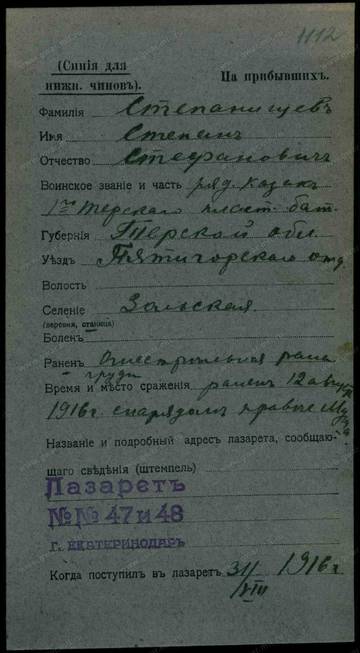 4112
(Синія для
нижн. чиновъ).
На прибывшихъ.
Фамилія Степанищевъ
Имя Степанъ
Отчество Стефановичъ
Воинское званіе и часть ряд. казакъ
1го Терскаго пласт. бат.
Губернія Терской обл
Уѣздъ Пятигорскаго отд
Волость
Селеніе Зольская
(деревня, станица)
Боленъ
Раненъ Огнестрѣльная рана
груди
Время и мѣсто сраженія раненъ 12 август
1916 г. снарядомъ
Названіе и подробный адресъ лазарета, сообщаю-
щаго свѣдѣнія (штемпель)
Лазаретъ
№№ 47 и 48
г. ЕКАТЕРИНОДАРЪ
Когда поступилъ въ лазаретъ 31/VIII 1916 г